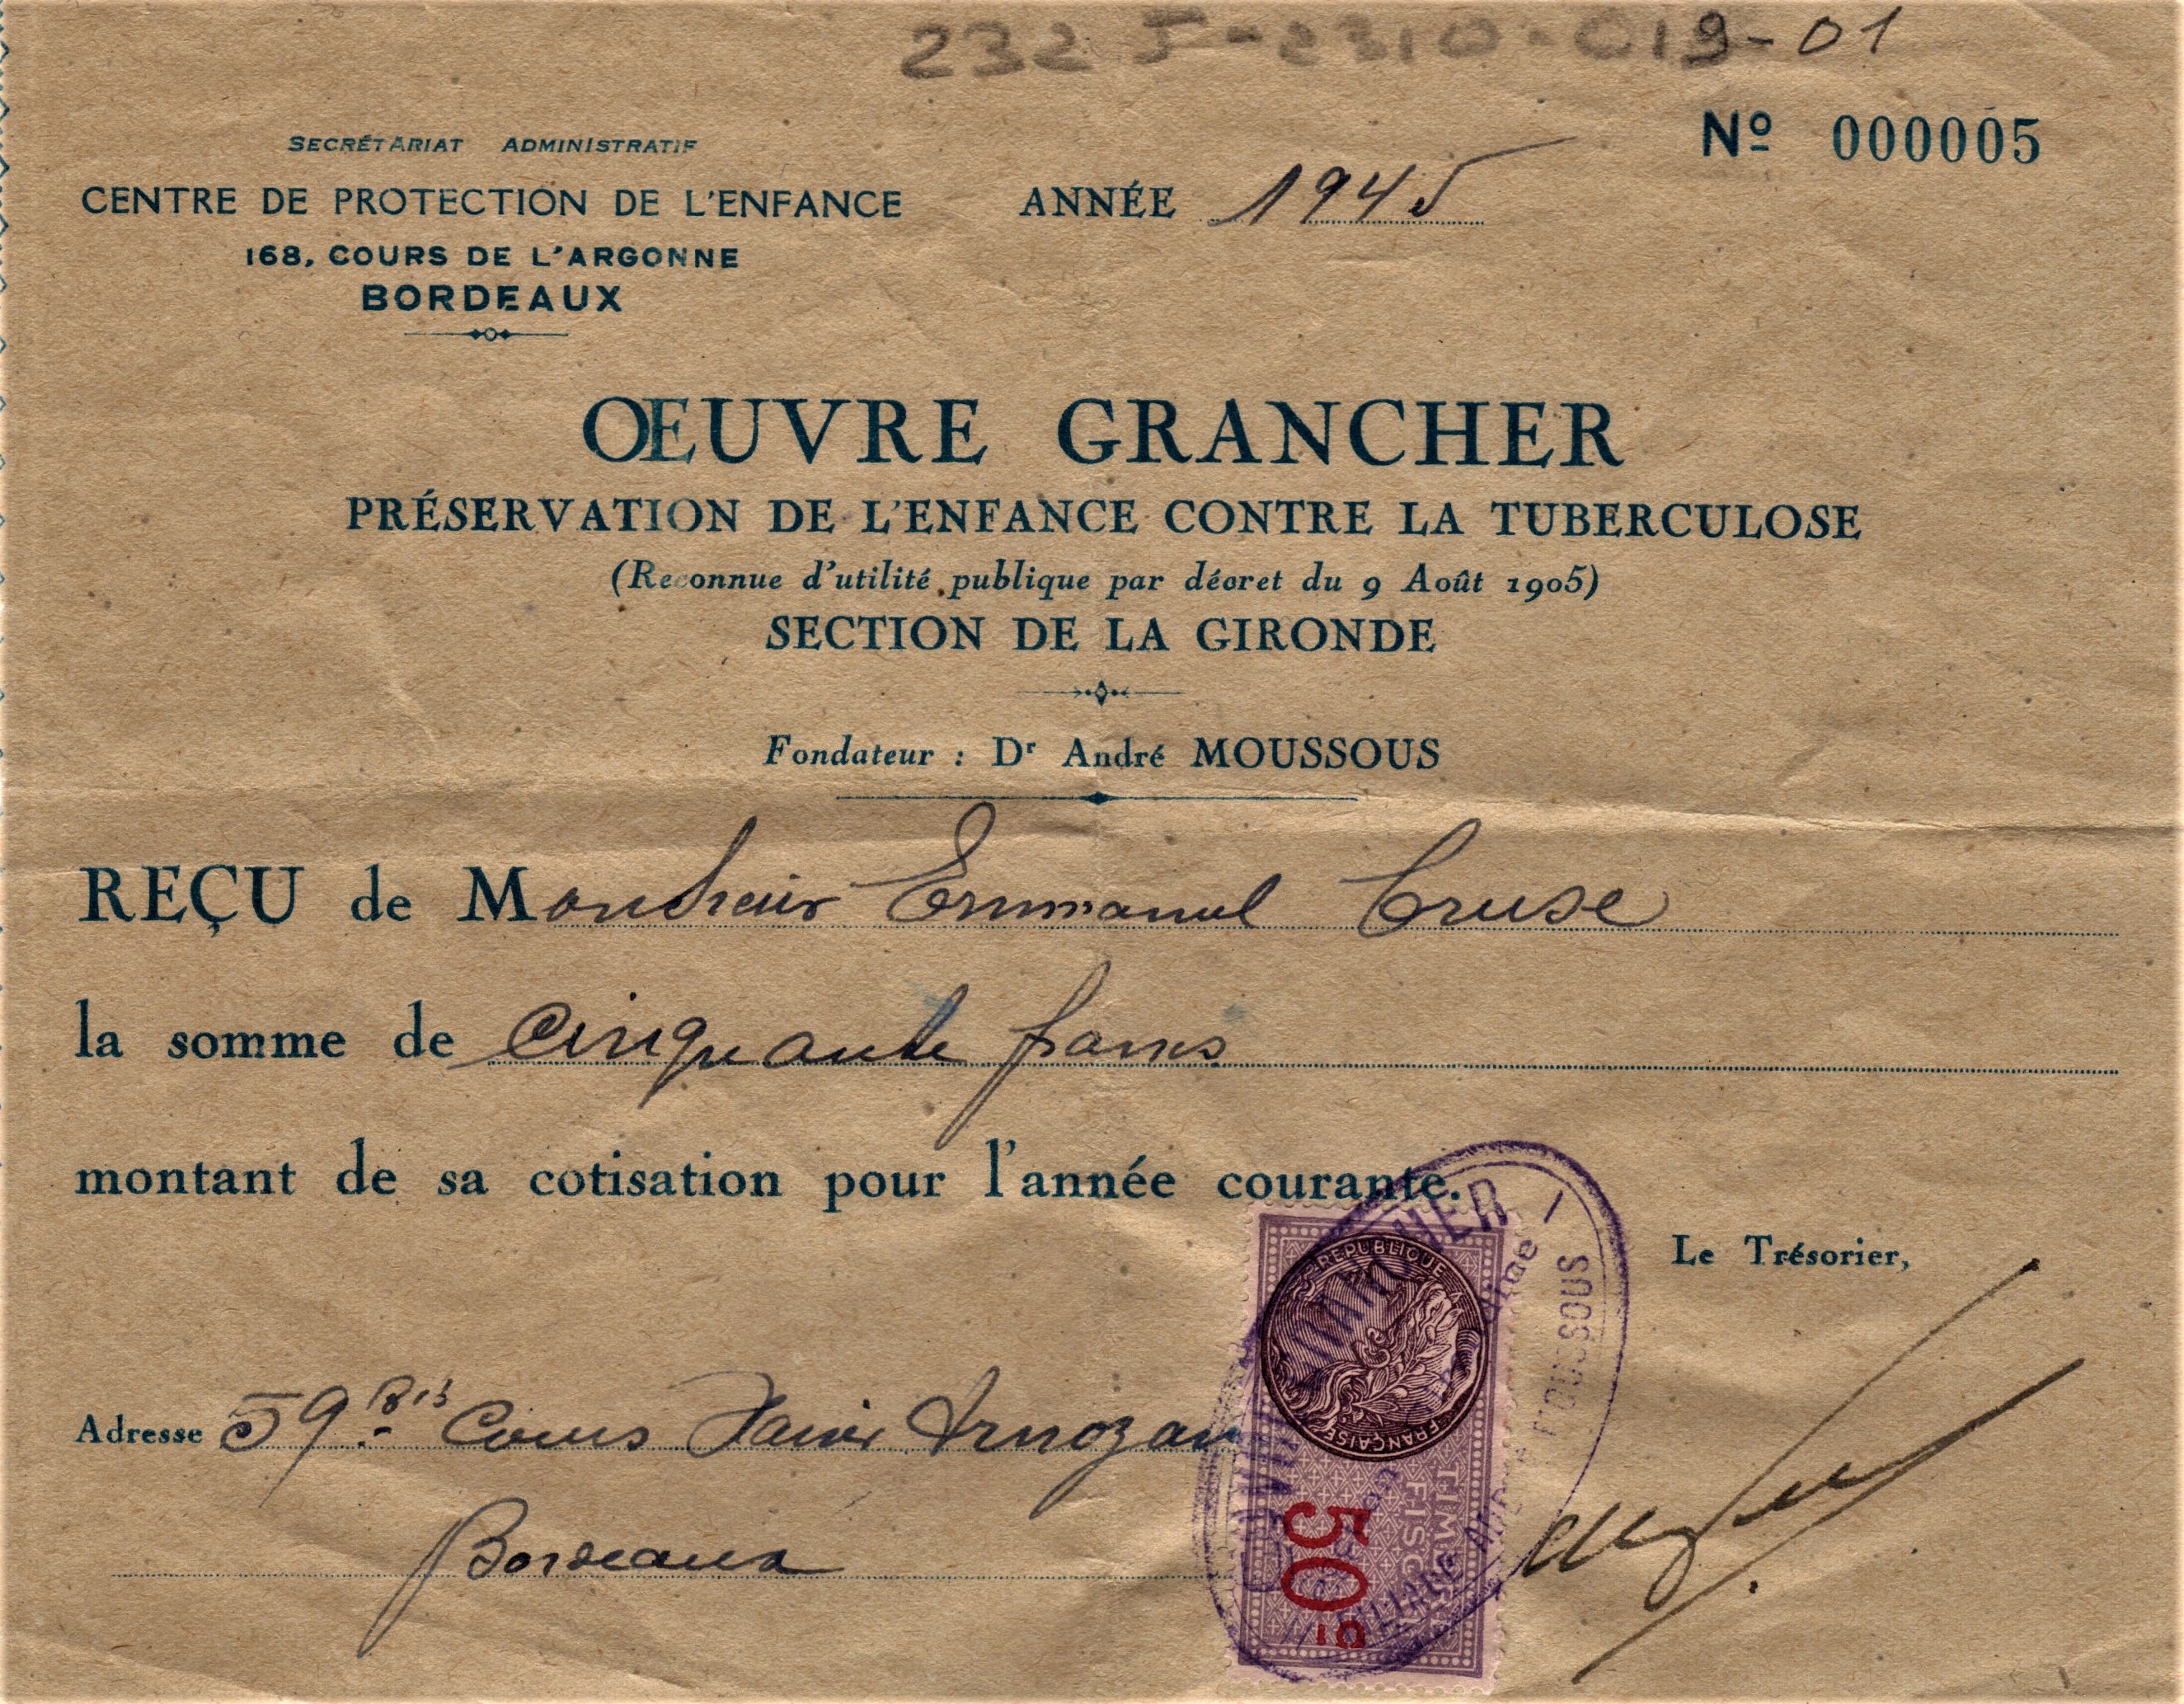 232 J-2310-019-01
SECRÉTARIAT ADMINISTRATIF
CENTRE DE PROTECTION DE L'ENFANCE
168, COURS DE L'ARGONNE
BORDEAUX
ANNÉE 1945
Nº 000005
ŒUVRE GRANCHER
PRÉSERVATION DE L'ENFANCE CONTRE LA TUBERCULOSE
(Reconnue d'utilité publique par décret du 9 Août 1905)
SECTION DE LA GIRONDE
Fondateur : Dr André MOUSSOUS
REÇU de Monsieur Emmanuel Cruse
la somme de Cinquante francs
montant de sa cotisation pour l'année courante.
Le Trésorier,
Adresse 59 Bis Cours Xavier Arnozan
Bordeaux
REPUBLIQUE FRANÇAISE
TIMBRE
FISCAL
50c
MOUSSOUS